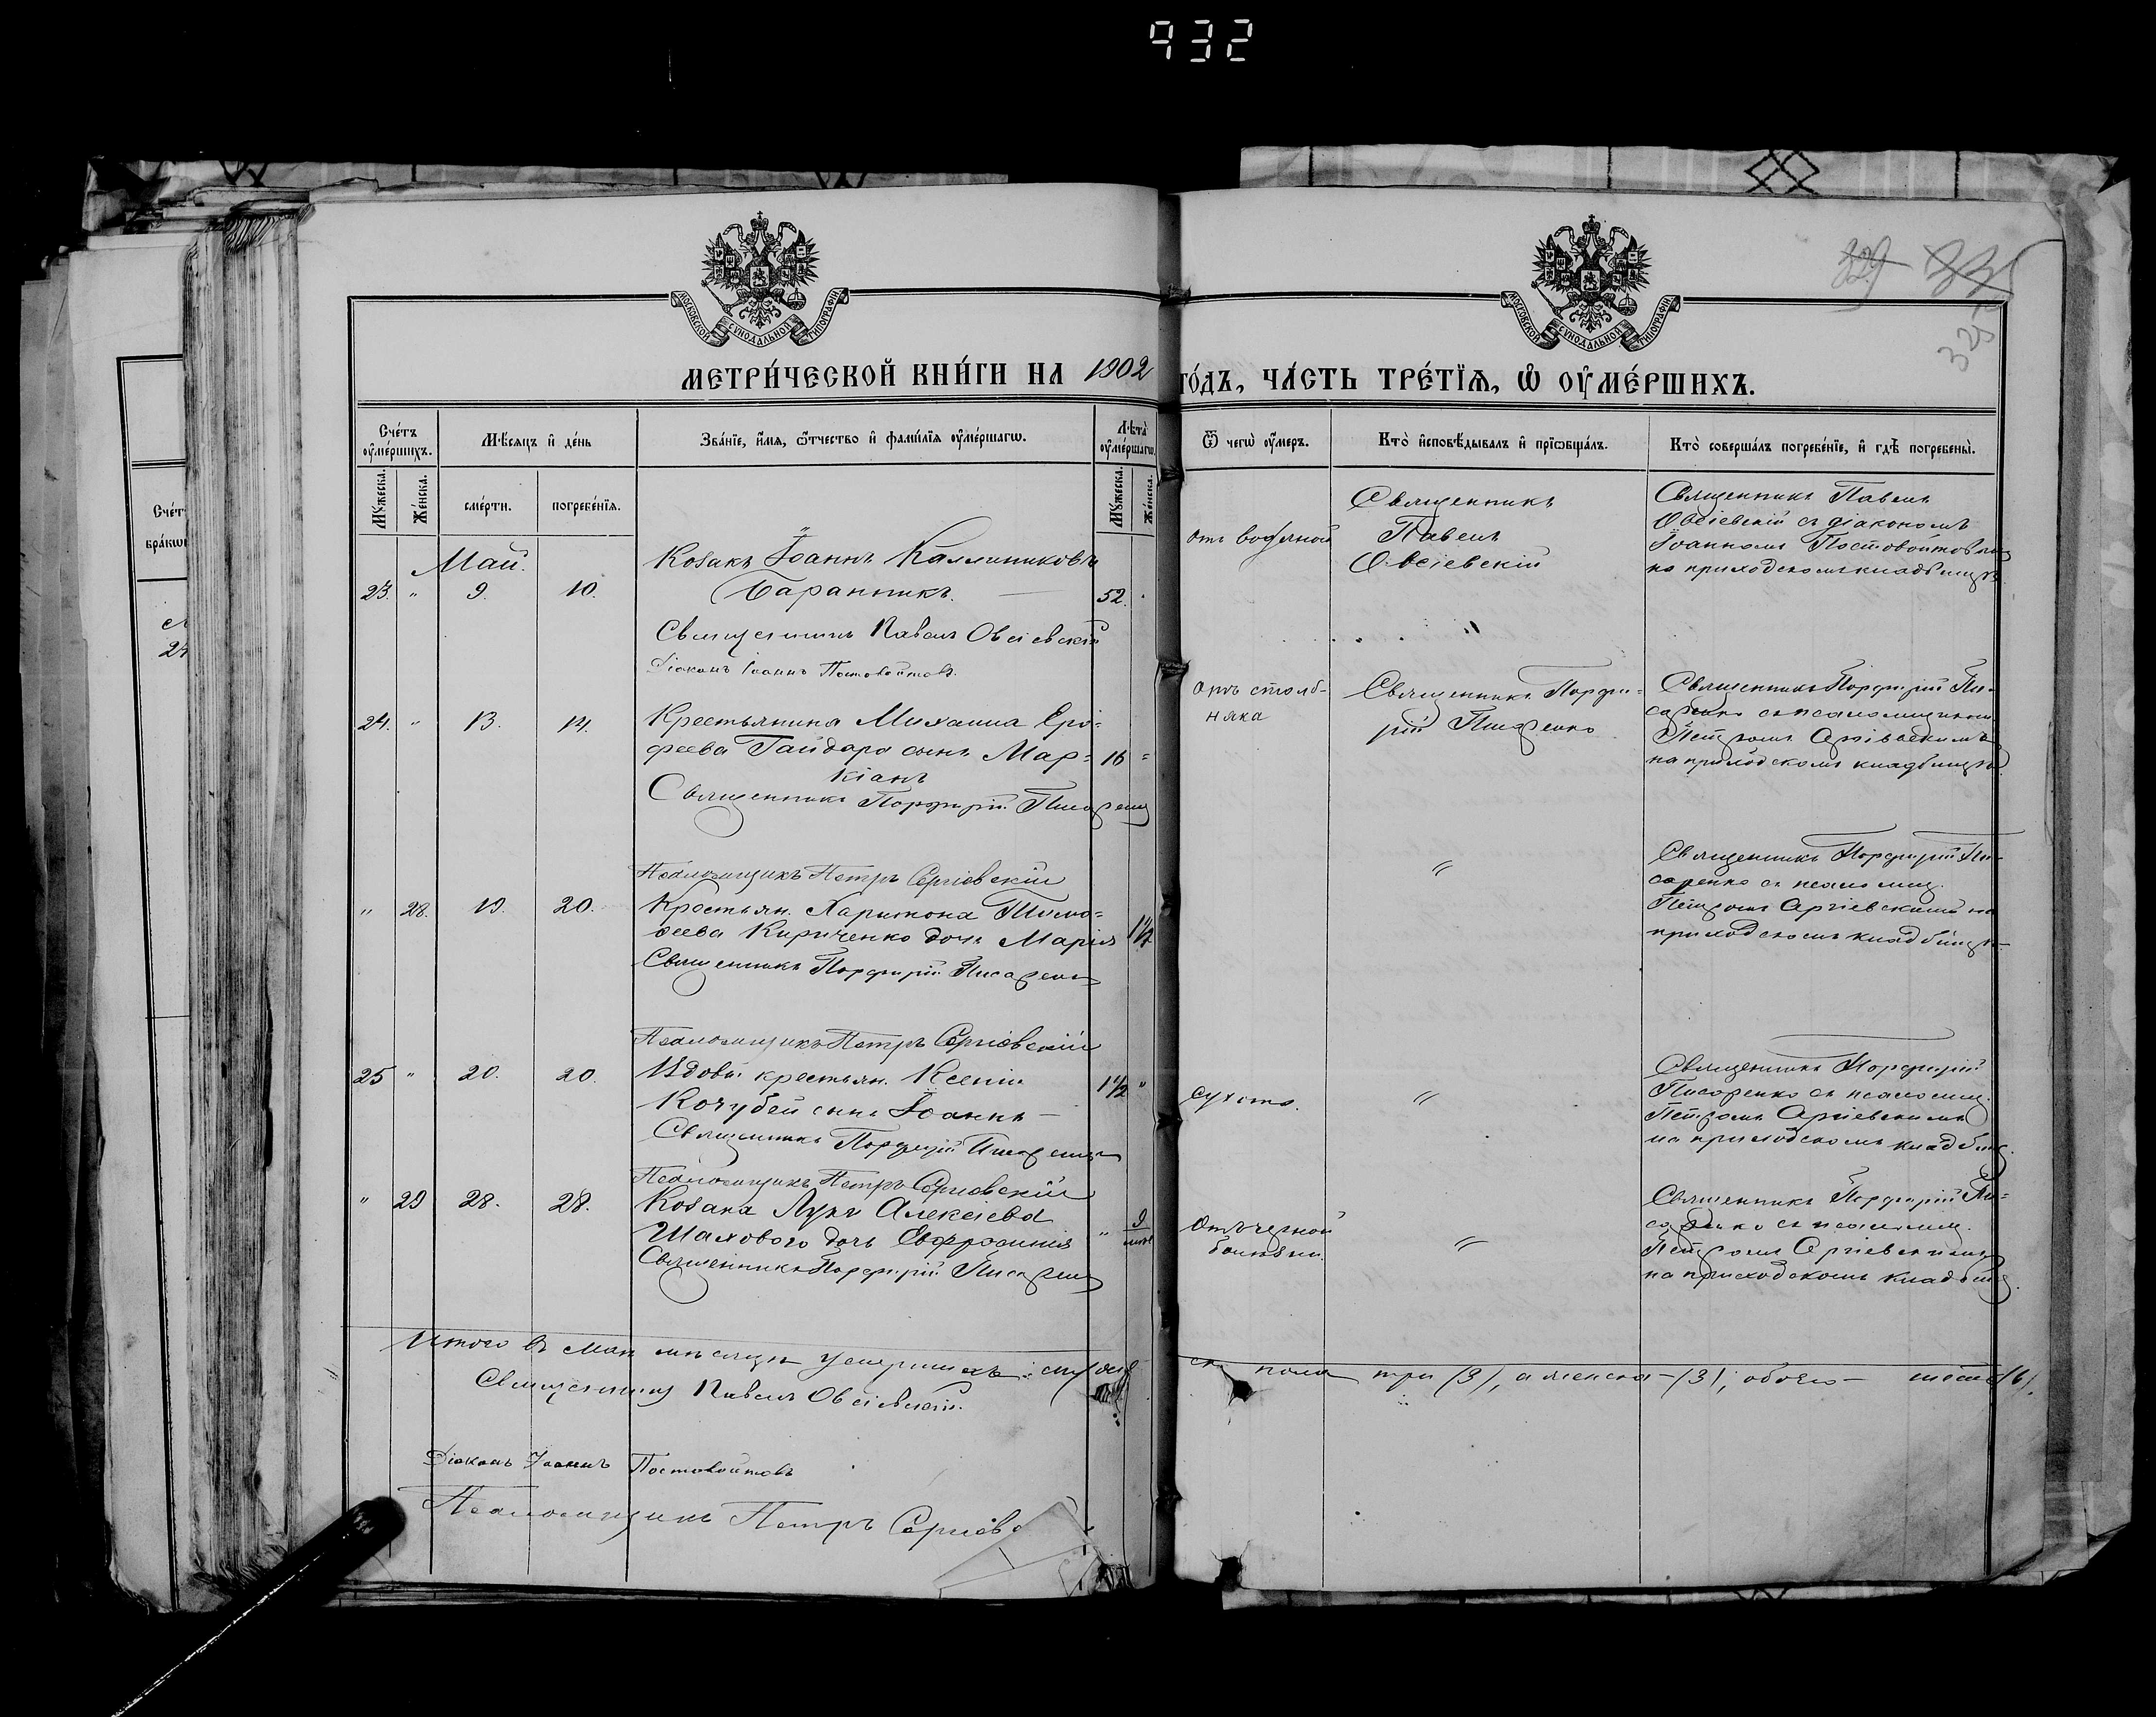 932
МОСКОВСКОЙ СУНОДАЛЬНОЙ ТИПОГРАФІИ
МОСКОВСКОЙ СУНОДАЛЬНОЙ ТИПОГРАФІИ
325
МЕТРИ́ЧЕСКОЙ КНИ́ГИ НА 1902 ГО́ДЪ, ЧА́СТЬ ТРЕ́ТЇѦ, Ѡ ОУ҆МЕ́РШИХЪ.
Сче́тъ оу҆ме́ршихъ.
Мꙋжеска.
Же́нска.
Мѣ́сяцъ и҆ де́нь
сме́рти.
погребе́нїѧ.
Зва́нїе, и҆́мѧ, ѻ҆́тчество и҆ фамі́лїѧ оу҆ме́ршагѡ.
Лѣ́та оу҆ме́ршагѡ.
Мꙋжеска.
Же́нска.
Ѿ чегѡ̀ оу҆́меръ.
Кто̀ и҆сповѣ́дывалъ и҆ прїѡбща́лъ.
Кто̀ соверша́лъ погребе́нїе, и҆ гдѣ̀ погребены̀.
Май.
23. " 9. 10.
Козакъ Іоаннъ Каллиниковъ
Баранникъ. 52.
Священникъ Павелъ Овсіевскій
Діаконъ Іоаннъ Постовойтовъ.
отъ водяной
Священникъ
Павелъ
Овсіевскій
Священникъ Павелъ
Овсіевскій съ діакономъ
Іоанномъ Постовойтовымъ
на приходскомъ кладбищѣ
24. " 13. 14.
Крестьянина Михаила Еро-
феева Гайдара сынъ Мар-
кіанъ
16
Священникъ Порфирій Писаренко
Псаломщикъ Петръ Сергіевскій
отъ столб-
няка
Священникъ Порфи-
рій Писаренко
Священникъ Порфирій Пи-
саренко съ псаломщикомъ
Петромъ Сергіевскимъ
на приходскомъ кладбищѣ.
" 28. 19. 20.
Крестьян. Харитона Тимо-
ѳеева Кириченко дочь Марія 1½
Священникъ Порфирій Писаренко
Псаломщикъ Петръ Сергіевскій
"
Священникъ Порфирій Пи-
саренко съ псаломщ.
Петромъ Сергіевскимъ на
приходскомъ кладбищѣ
25 " 20. 20.
Вдовы крестьян. Ксеніи
Кочубей сынъ Іоаннъ 1½ "
Священникъ Порфирій Писаренко
Псаломщикъ Петръ Сергіевскій
"
Священникъ Порфирій
Писаренко съ псаломщ.
Петромъ Сергіевскимъ
на приходскомъ кладбищ.
" 29 28. 28.
Козака Луки Алексіева
Шахового дочь Евфросинія " 9
Священникъ Порфирій Писаренко
"
Священникъ Порфирій Пи-
саренко съ псаломщ.
Петромъ Сергіевскимъ
на приходскомъ кладбищ.
Итого въ маѣ мѣсяцѣ умершихъ: пола три (3), а женска (3), обоего — шесть (6).
Священникъ Павелъ Овсіевскій.
Діаконъ Іоаннъ Постовойтовъ
Псаломщикъ Петръ Сергіевс